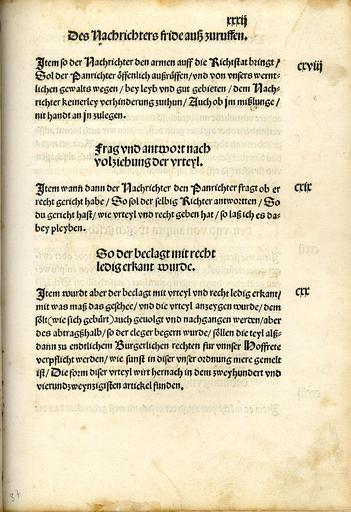 xxxij
Des Nachrichters fride auß zuruffen.
Item so der Nachrichter den armen auff die Richtstat bringt /
cxviij
Sol der Panrichter öffenlich außrüffen / vnd von vnsers wernt-
lichen gewalts wegen / bey leyb vnd gut gebieten / dem Nach-
richter keinerley verhinderung zuthun / Auch ob jm mißlunge /
nit handt an jn zulegen.
Frag vnd antwort nach
volziehung der vrteyl.
Item wann dann der Nachrichter den Panrichter fragt ob er
cxix
recht gericht habe / So sol der selbig Richter antwortten / So
du gericht hast / wie vrteyl vnd recht geben hat / so laß ich es da-
bey pleyben.
So der beclagt mit recht
ledig erkant wurde.
Item wurdt aber der beclagt mit vrteyl vnd recht ledig erkant /
cxx
mit was maß das geschee / vnd die vrteyl anzeygen wurde / dem
sölt (wie sich gebürt) auch geuolgt vnd nachgangen werden / aber
des abtragßhalb / so der cleger begern wurde / söllen die teyl alß-
dann zu endtlichem Burgerlichen rechten fur vnnser Hoffrete
verpflicht werden / wie sunst in diser vnser ordnung mere gemelt
ist / Die form diser vrteyl wirt hernach in dem zweyhundert vnd
vierundzweynzigisten artickel funden.